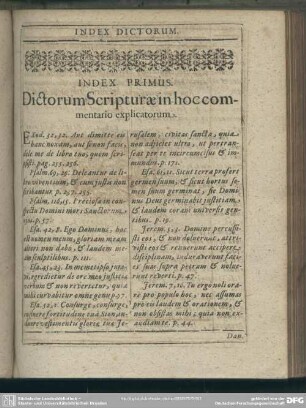 INDEX DICTORUM.
INDEX PRIMUS.
Dictorum Scripturæ in hoc com-
mentario explicatorum.
Exod. 32, 32. Aut dimitte eis
hanc noxam, aut si non facis, de-
le me de libro tuo, quem scri-
psisti. pag. 255, 256.
Psalm. 69, 29. Deleantur de li-
bro viventium, & cum justis non
scribantur. p. 257. 255.
Psalm. 116, 15. Preciosa in con-
spectu Domini mors Sanctorum
p. 57.
Esa. 42, 8. Ego Dominus, hoc
est nomen meum, gloriam meam
alteri non dabo, & laudem me-
am sculptilibus. p. 111.
Esa. 45, 23. In memetipso juravi,
egredietur de ore meo justitiæ
verbum & non revertetur, quia
mihi curvabitur omne genu
Esa. 52, 1. Consurge, consurge,
induere fortitudine tua Sion, in-
duere vestimentis gloriæ tuæ Je-
rusalem, civitas sancta, quia
non adjiciet ultra, ut pertran-
seat per te incircumcisus & im-
mundus. p. 171.
Esa. 61, 11. Sicut terra profert
germen suum, & sicut hortus se-
men suum germinat, sic Domi-
nus Deus germinabit justitiam,
& laudem coram universis gen-
tibus. p. 19.
Jerem. 5, 3. Domine percus-
sisti eos, & non doluerunt, attri-
visti eos & renuerunt accipere
disciplinam, induraverunt faci-
es suas supra petram & nolue-
runt reverti. p. 47.
Jerem. 7, 16. Tu ergo noli ora-
re pro populo hoc, nec assumas
pro eis laudem & orationem, &
non obsistas mihi; quia non ex-
audiam te. p. 44.
Dan.